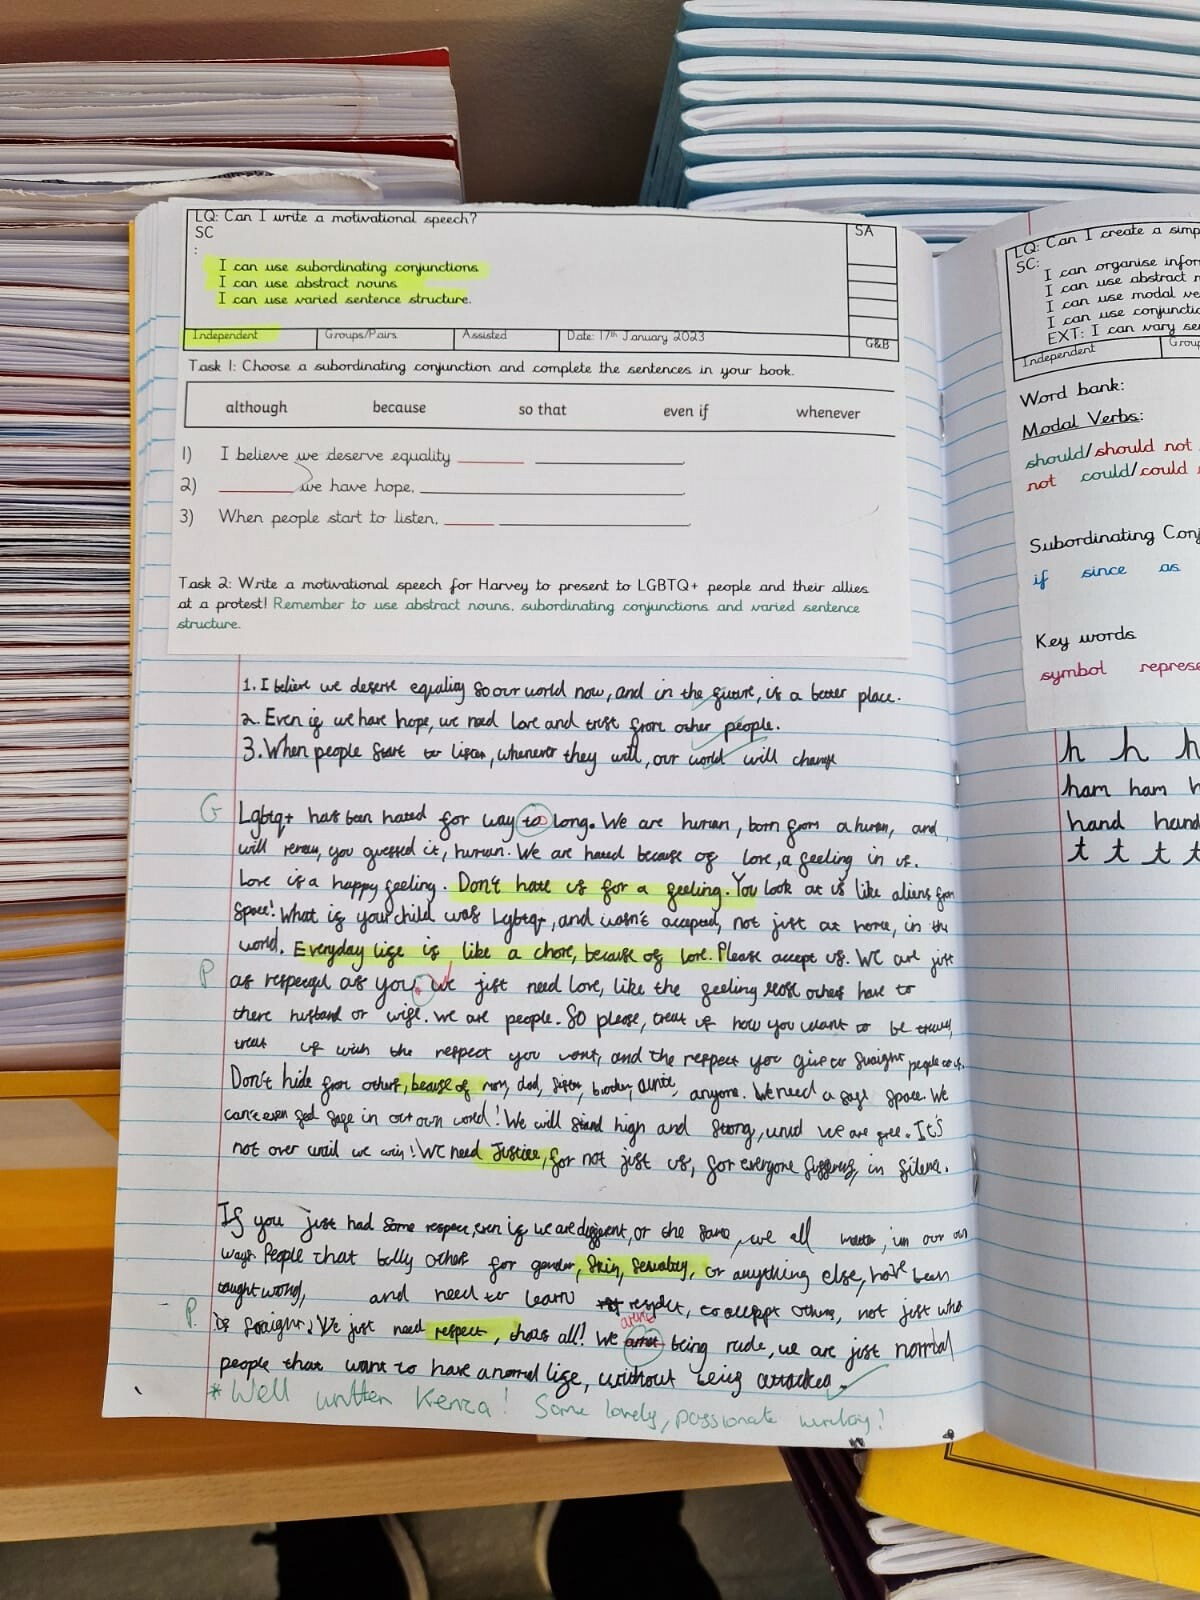 LQ: Can I write a motivational speech?
SC
:
I can use subordinating conjunctions
I can use abstract nouns
I can use varied sentence structure.
SA
Independent
Groups/Pairs
Assisted
Date: 17th January 2023
G&B
Task 1: Choose a subordinating conjunction and complete the sentences in your book.
although because so that even if whenever
1) I believe we deserve equality
2) we have hope,
3) When people start to listen,
Task 2: Write a motivational speech for Harvey to present to LGBTQ+ people and their allies
at a protest! Remember to use abstract nouns, subordinating conjunctions and varied sentence
structure.
1. I believe we deserve equality so our world now, and in the future, is a better place.
2. Even if we have hope, we need love and trust from other people.
3. When people start to listen, whenever they will, our world will change
G Lgbtq+ has been hated for way to long. We are human, born from a human, and
will remain, you guessed it, human. We are hated because of love, a feeling in us.
Love is a happy feeling. Don't hate us for a feeling. You look at us like aliens from
space! What if your child was Lgbtq+, and wasn't accepted, not just at home, in the
world. Everyday life is like a chore, because of love. Please accept us. We are just
P as respectful as you. We just need love, like the feeling most others have to
there husband or wife. We are people. So please, treat us how you want to be
treat us with the respect you want, and the respect you give to straight people
Don't hide from others, because of mom, dad, sister, brother, anyone. We need a safe space. We
feel safe in our own world! We will stand high and strong, until we are free. It's
not over until we win! We need Justice, for not just us, for everyone suffering in silence.
If you just had some respect, even if we are different, or the same, we all matter, in our own
ways. People that bully others for gender, skin, sexuality, or anything else, have been
taught wrong, and need to learn respect, to accept others, not just who
P. is straight! We just need respect, thats all! We arent being rude, we are just normal
people that want to have a normal life, without being attacked.
* Well written Kenza! Some lovely, passionate writing!
LQ: Can I create a simp
SC:
I can organise infor
I can use abstract n
I can use modal ve
I can use conjunctio
EXT: I can vary se
Independent
Grou
Word bank:
Modal Verbs:
should/should not
not could/could
Subordinating Conj
if since as
Key words
symbol represe
h h h
ham ham h
hand hand
t t t t